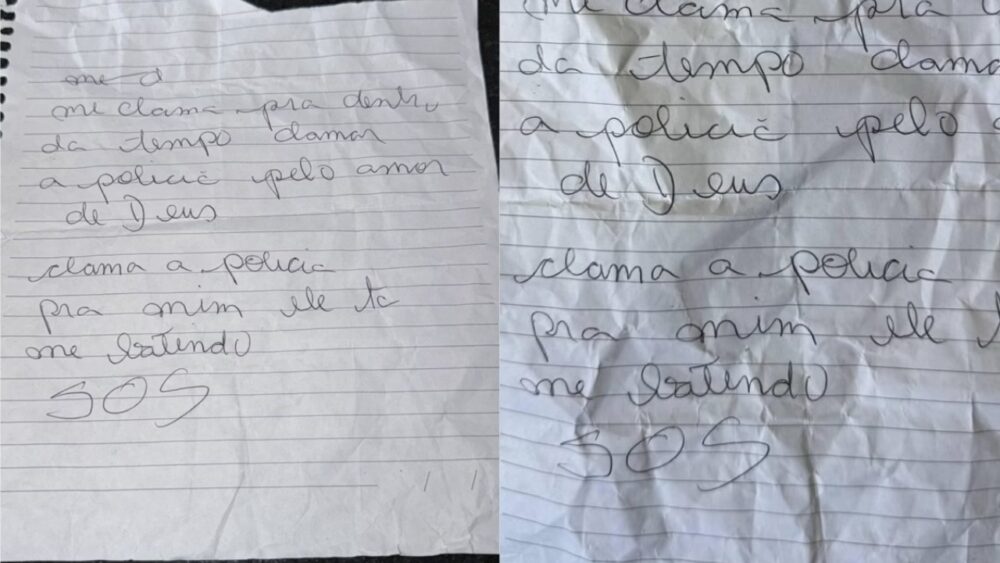 me d
me clama pra dentro
da tempo clamar
a policia pelo amor
de Deus
clama a policia
pra mim ele ta
me batendo
SOS
me clama pra
da tempo clama
a policia pelo
de Deus
clama a policia
pra mim ele
me batendo
SOS